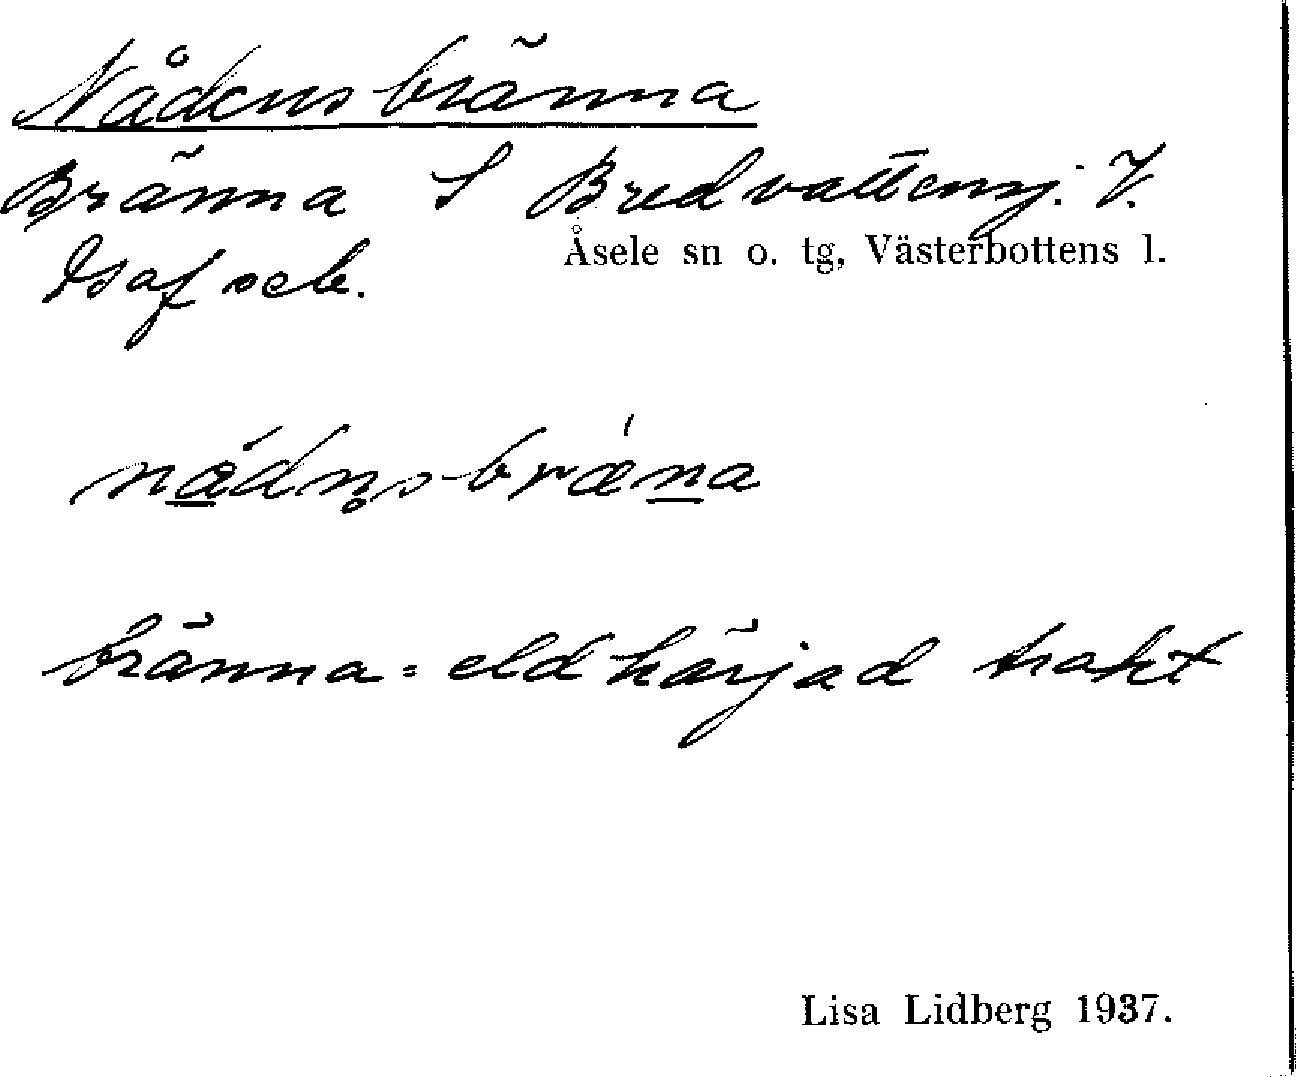 Nådensbränna
Bränna S Bredvattenj. V.
Åsele sn o. tg, Västerbottens l.
nådn̥s-bræ´na
bränna = eldhärjad trakt
Lisa Lidberg 1937.